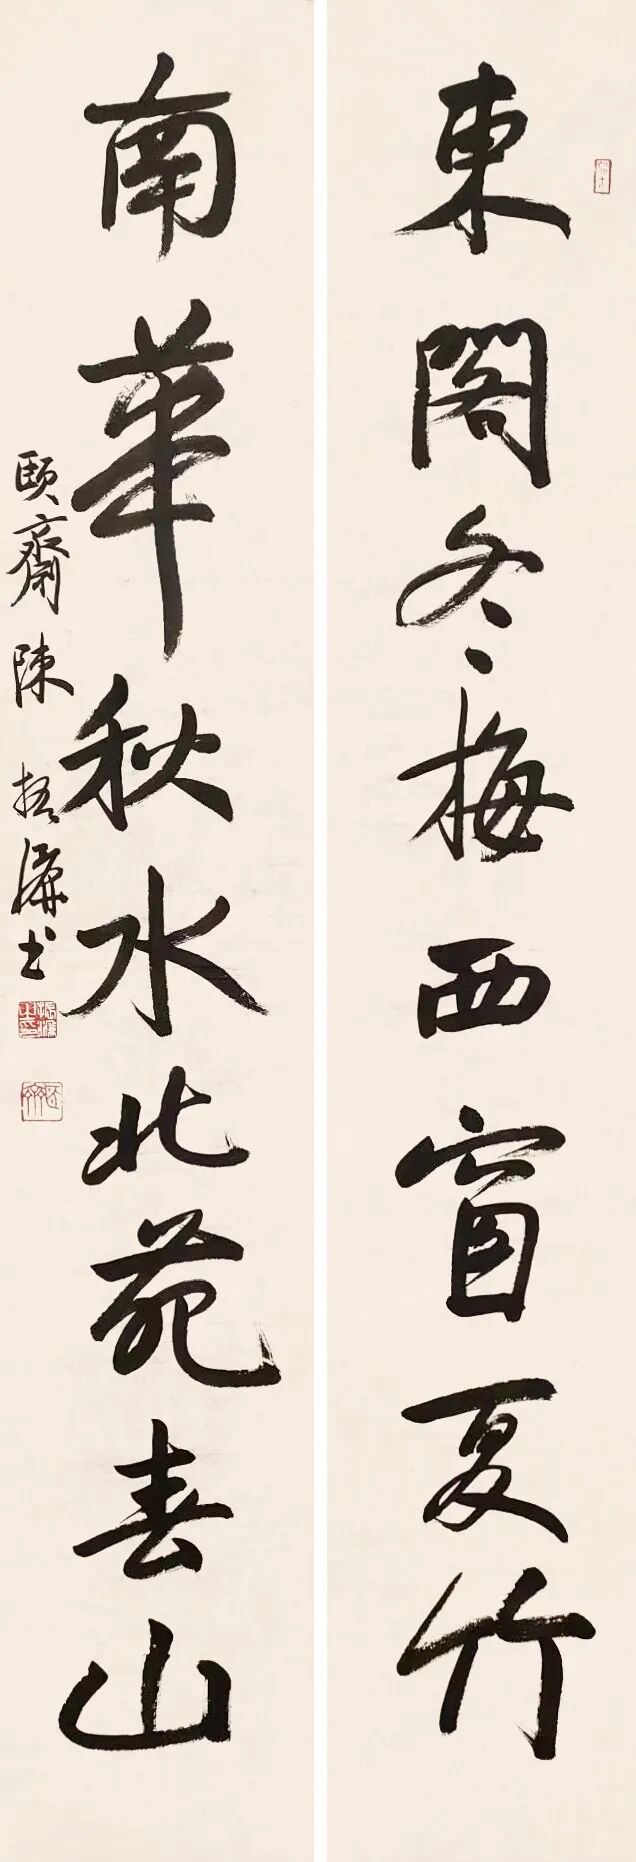 東閣冬梅西窗夏竹
南華秋水北苑春山
頤齋陳振濂書